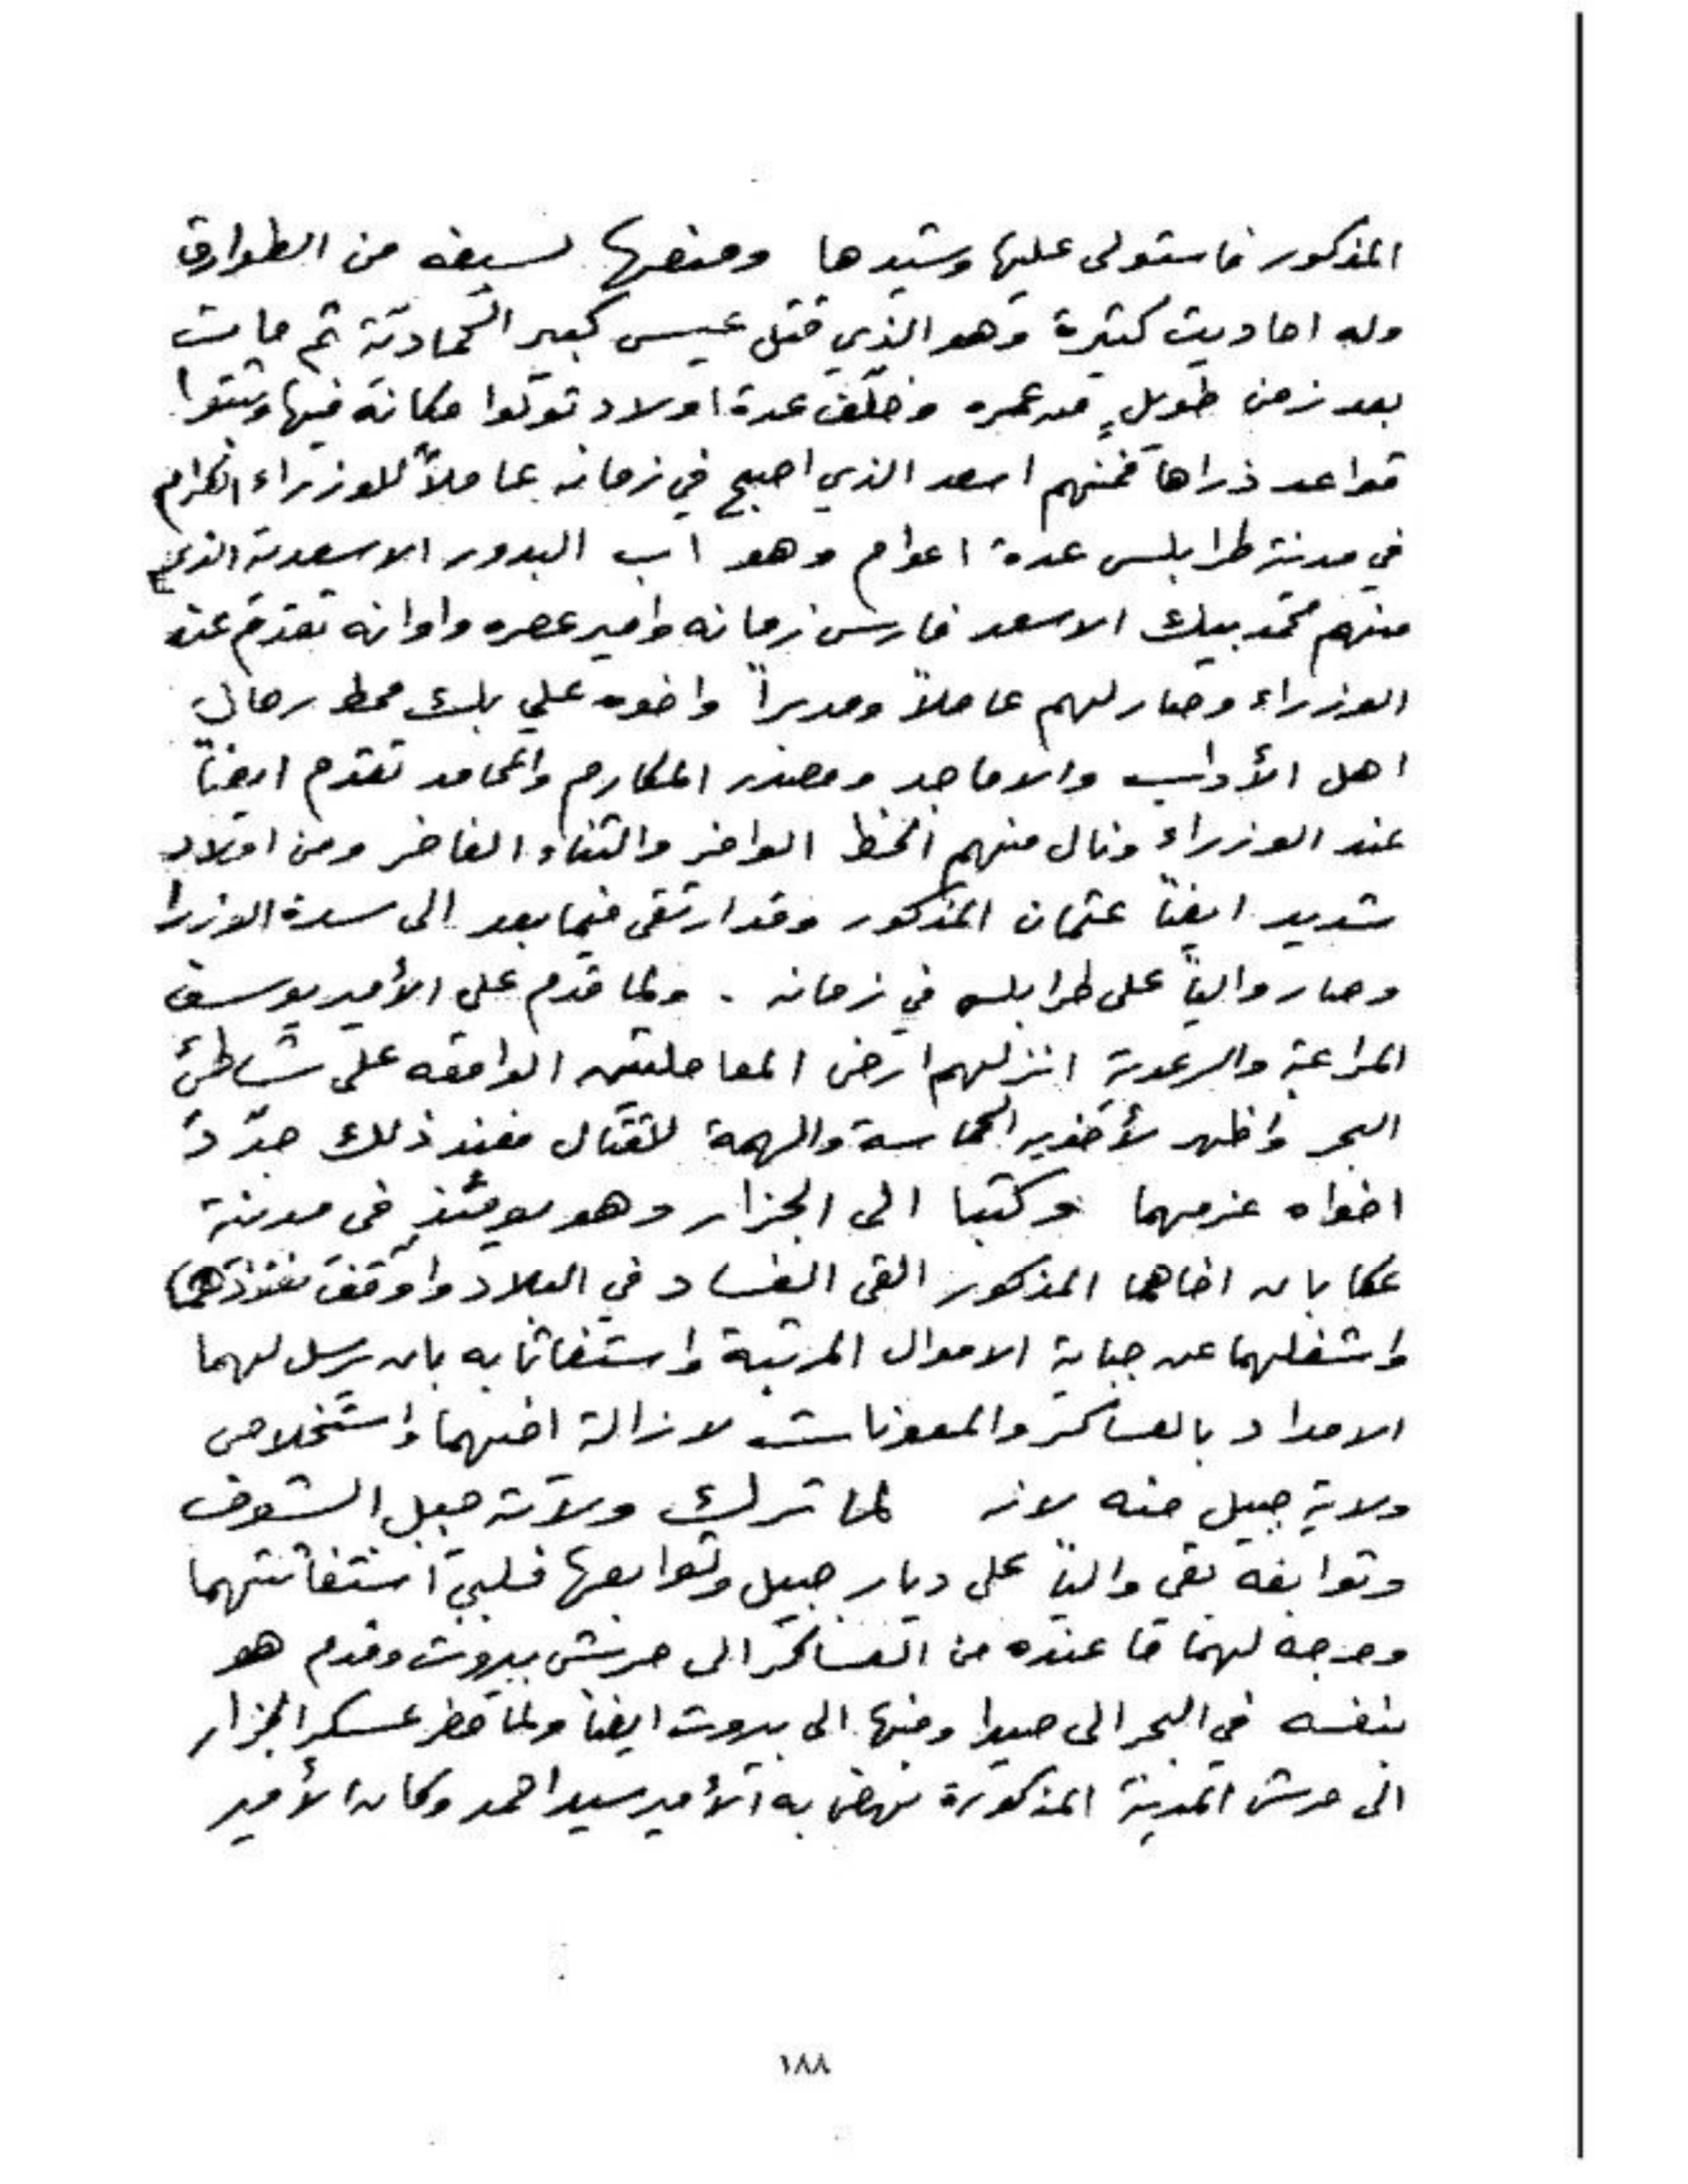 المذكور فاستولى عليها وشيدها ومنعها بسيفه من الطوارق
وله احاديث كثيرة وهو الذي قتل عيسى كبير الحمادية ثم مات
بعد زمن طويلٍ من عمره وخلّف عدة اولاد تولوا مكانه فيها وثبتوا
قواعد ذراها فمنهم اسعد الذي اصبح في زمانه عاملاً للوزراء الكرام
في مدينة طرابلس عدة اعوام وهو اب البدور الاسعدية الذي
منهم محمد بيك الاسعد فارس زمانه وامير عصره واوانه تقدم عند
الوزراء وصار لهم عاملاً ومديراً واخوه علي بك محط رحال
اهل الأداب والاماجد ومصدر المكارم والمحامد تقدم ايضاً
عند الوزراء ونال منهم الحظ الوافر والثناء الفاخر ومن اولاد
شديد ايضاً عثمان المذكور وقد ارتقى فيما بعد الى سدة الوزرا
وصار والياً على طرابلس في زمانه . ولما قدم على الأمير يوسف
المراعبة والرعدية انزلهم ارض المعاملتين الواقعه على شاطئ
البحر واظهر لأخويه الحماسة والهمة للقتال فعند ذلك جدّد
اخواه عزمهما وكتبا الى الجزار وهو يومئذٍ في مدينة
عكا بان اخاهما المذكور القى الفساد في البلاد واوقف نفوذهما
واشغلهما عن جباية الاموال المرتبة واستغاثا به بان يرسل لهما
الامداد بالعساكر والمعونات لازالة اخيهما واستخلاص
ولاية جبيل منه لانه لما ترك ولاية جبل الشوف
وتوابعه بقي والياً على ديار جبيل وتوابعها فلبى استغاثتهما
ووجه لهما ما عنده من العساكر الى حرش بيروت وقدم هو
بنفسه في البحر الى صيدا ومنها الى بيروت ايضاً ولما حضر عسكر الجزار
الى حرش المدينة المذكورة نهض به الأمير سيد احمد وكان الأمير
١٨٨